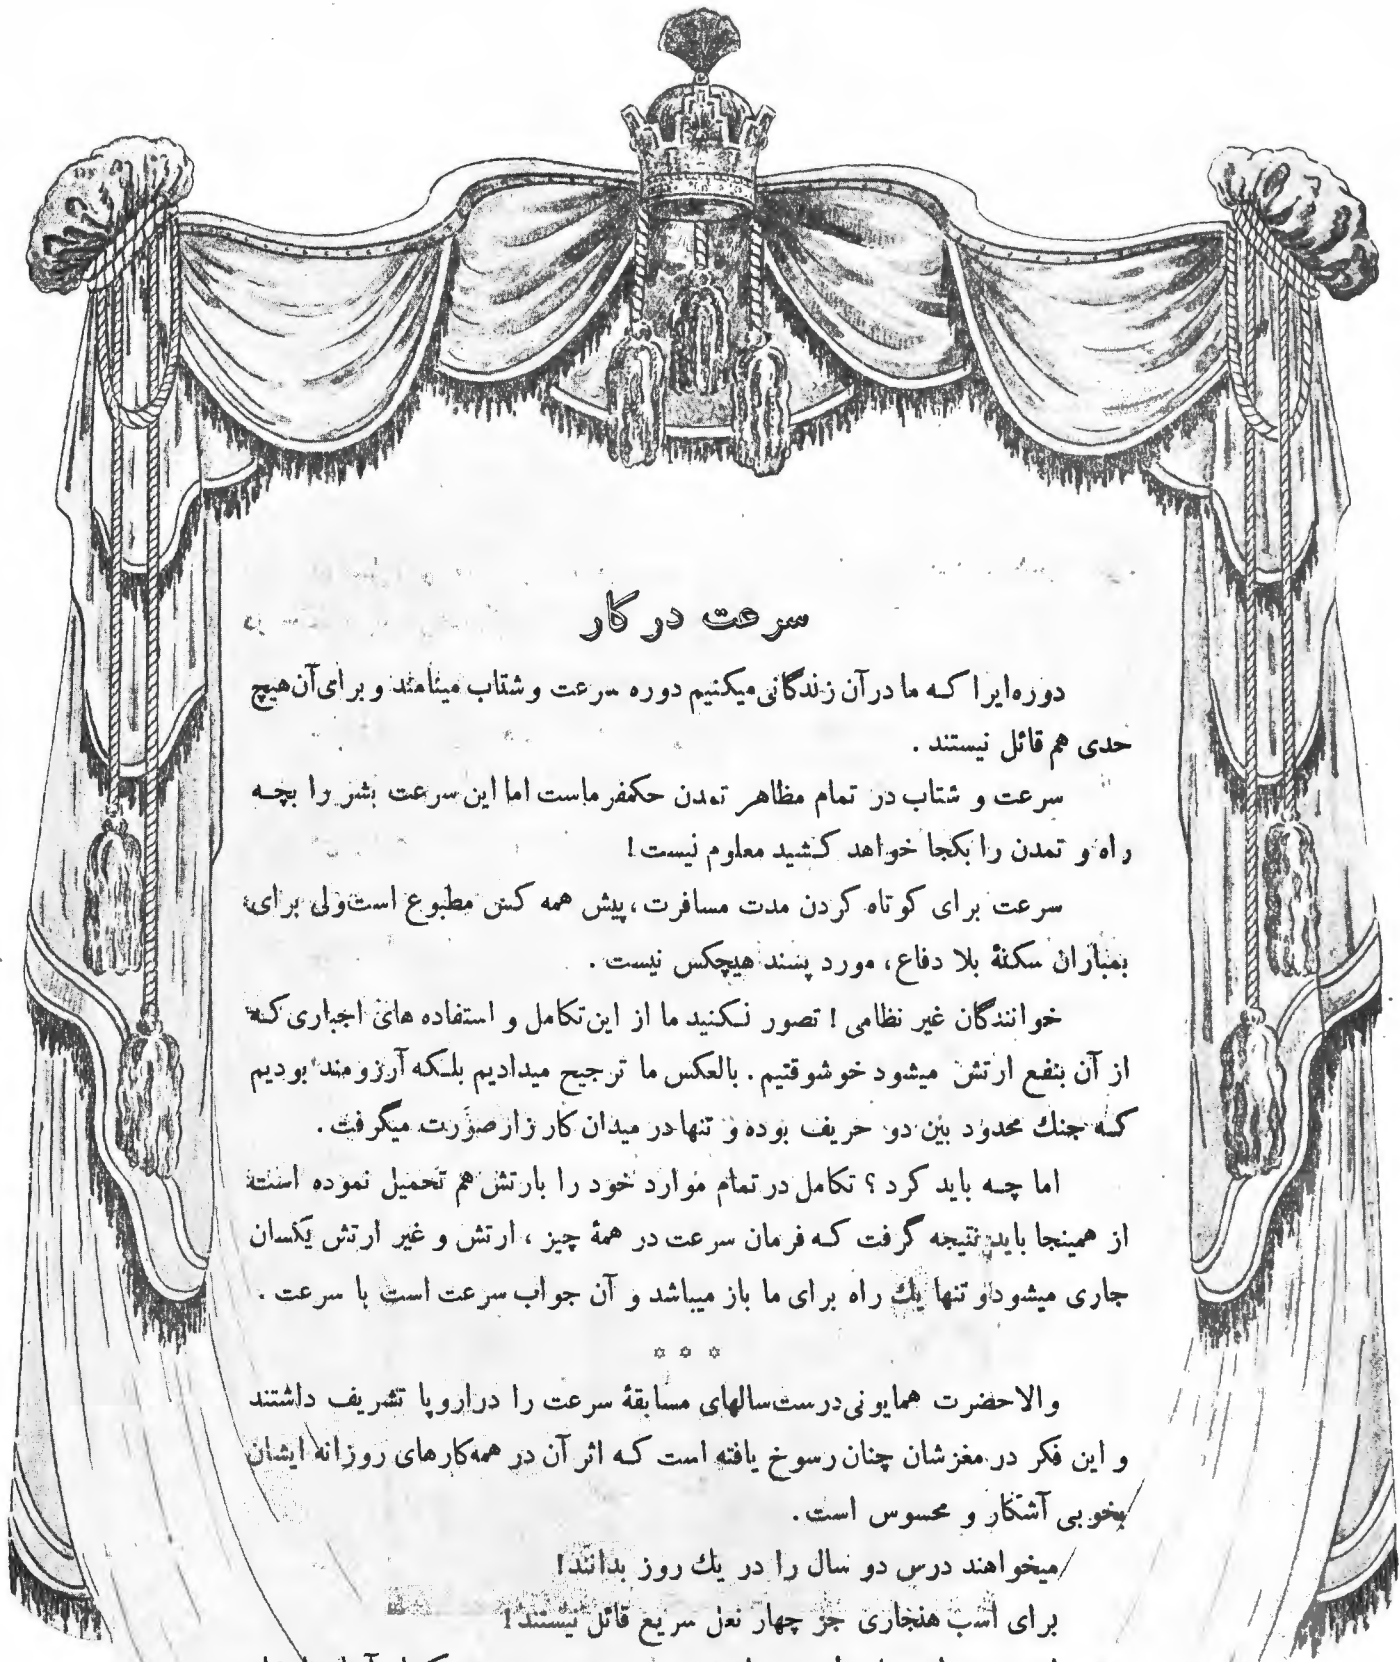 سرعت در کار
دوره‌ایرا که ما در آن زندگانی میکنیم دوره سرعت و شتاب مینامند و برای آن هیچ
حدی هم قائل نیستند .
سرعت و شتاب در تمام مظاهر تمدن حکمفرماست اما این سرعت بشر را بچه
راه و تمدن را بکجا خواهد کشید معلوم نیست !
سرعت برای کوتاه کردن مدت مسافرت ، پیش همه کس مطبوع است ولی برای
بمباران سکنهٔ بلا دفاع ، مورد پسند هیچکس نیست .
خوانندگان غیر نظامی ! تصور نکنید ما از این تکامل و استفاده های اجباری که
از آن بنفع ارتش میشود خوشوقتیم . بالعکس ما ترجیح میدادیم بلکه آرزومند بودیم
که جنك محدود بین دو حریف بوده و تنها در میدان کار زار صورت میگرفت .
اما چه باید کرد ؟ تکامل در تمام موارد خود را بارتش هم تحمیل نموده است
از همینجا باید نتیجه گرفت که فرمان سرعت در همهٔ چیز ، ارتش و غیر ارتش یکسان
جاری میشود و تنها یك راه برای ما باز میباشد و آن جواب سرعت است با سرعت .
✡ ✡ ✡
والاحضرت همایونی درست سالهای مسابقهٔ سرعت را در اروپا تشریف داشتند
و این فکر در مغزشان چنان رسوخ یافته است که اثر آن در همه کارهای روزانه ایشان
بخوبی آشکار و محسوس است .
میخواهند درس دو سال را در یك روز بدانند !
برای اسب هنجاری جز چهار نعل سریع قائل نیستند !